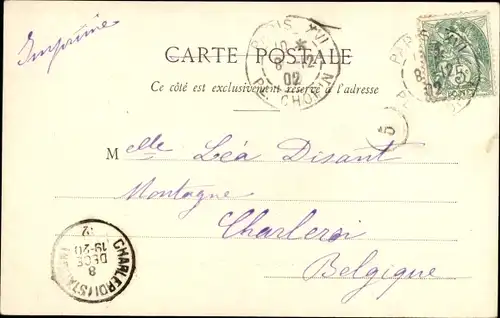 Imprimé
CARTE POSTALE
Ce côté est exclusivement réservé à l'adresse
PARIS XVI
8 12
02
PL. CHOPIN
5
Melle Léa Disant
Montagne
Charleroi
Belgique
CHARLEROI (STATION)
8
DECE
19-20